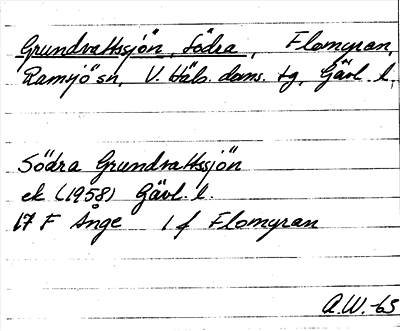 Grundvattssjön, Södra, Flomyran,
Ramsjö sn, V. Häls. doms. tg, Gävl. l.
Södra Grundvattssjön
ek (1958) Gävl. l.
17 F Ånge 1 f Flomyran
A.W. -65